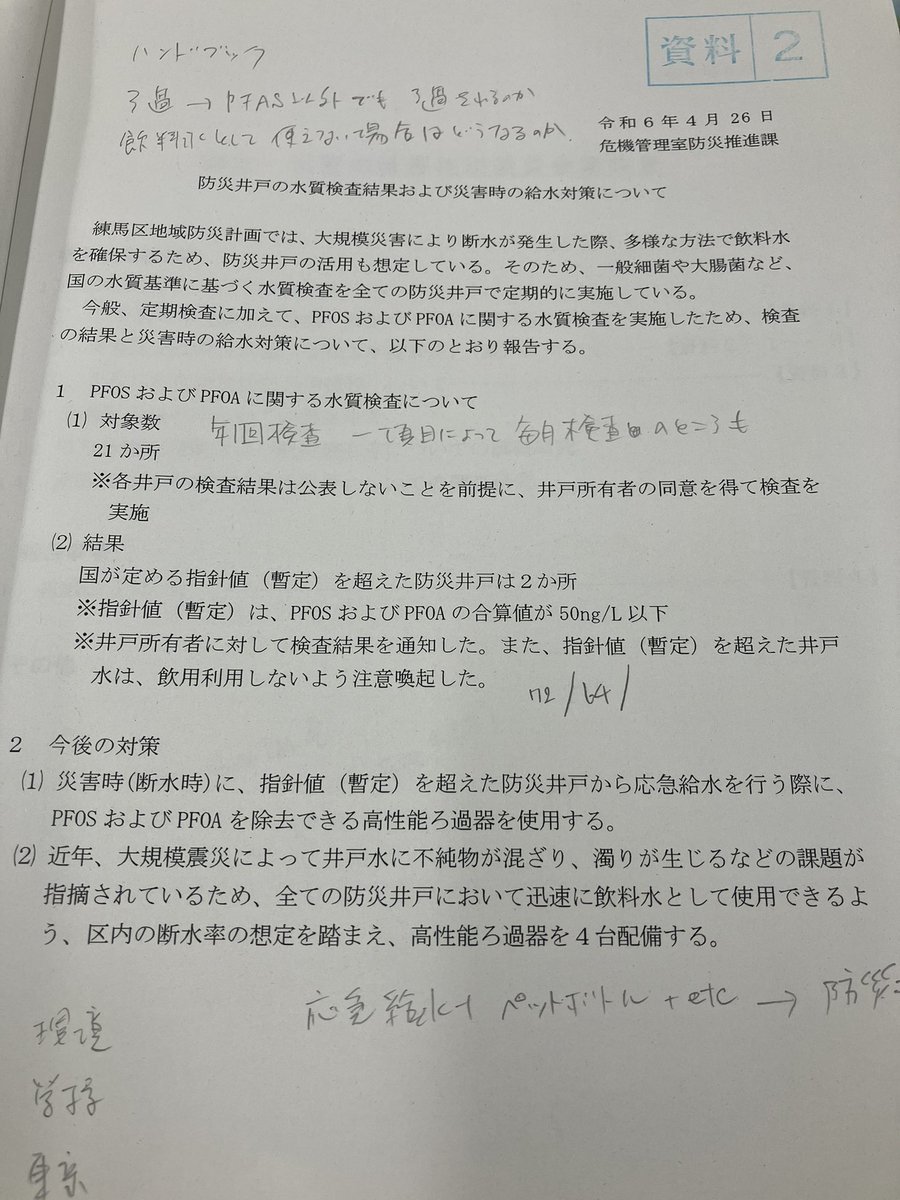 資料 2
ハンドブック
ろ過 → PFAS以外でも ろ過されるのか
飲料水として 使えない場合はどうなるのか
令和6年4月26日
危機管理室防災推進課
防災井戸の水質検査結果および災害時の給水対策について
練馬区地域防災計画では、大規模災害により断水が発生した際、多様な方法で飲料水
を確保するため、防災井戸の活用も想定している。そのため、一般細菌や大腸菌など、
国の水質基準に基づく水質検査を全ての防災井戸で定期的に実施している。
今般、定期検査に加えて、PFOSおよびPFOAに関する水質検査を実施したため、検査
の結果と災害時の給水対策について、以下のとおり報告する。
1 PFOSおよびPFOAに関する水質検査について
(1) 対象数
年1回検査 項目によって 毎月検査 のところも
21か所
※各井戸の検査結果は公表しないことを前提に、井戸所有者の同意を得て検査を
実施
(2) 結果
国が定める指針値（暫定）を超えた防災井戸は2か所
※指針値（暫定）は、PFOSおよびPFOAの合算値が50ng/L以下
※井戸所有者に対して検査結果を通知した。また、指針値（暫定）を超えた井戸
水は、飲用利用しないよう注意喚起した。
72/64/
2 今後の対策
(1) 災害時(断水時)に、指針値（暫定）を超えた防災井戸から応急給水を行う際に、
PFOSおよびPFOAを除去できる高性能ろ過器を使用する。
(2) 近年、大規模震災によって井戸水に不純物が混ざり、濁りが生じるなどの課題が
指摘されているため、全ての防災井戸において迅速に飲料水として使用できるよ
う、区内の断水率の想定を踏まえ、高性能ろ過器を4台配備する。
応急給水 ペットボトル + etc → 防災
環境
学校
東京